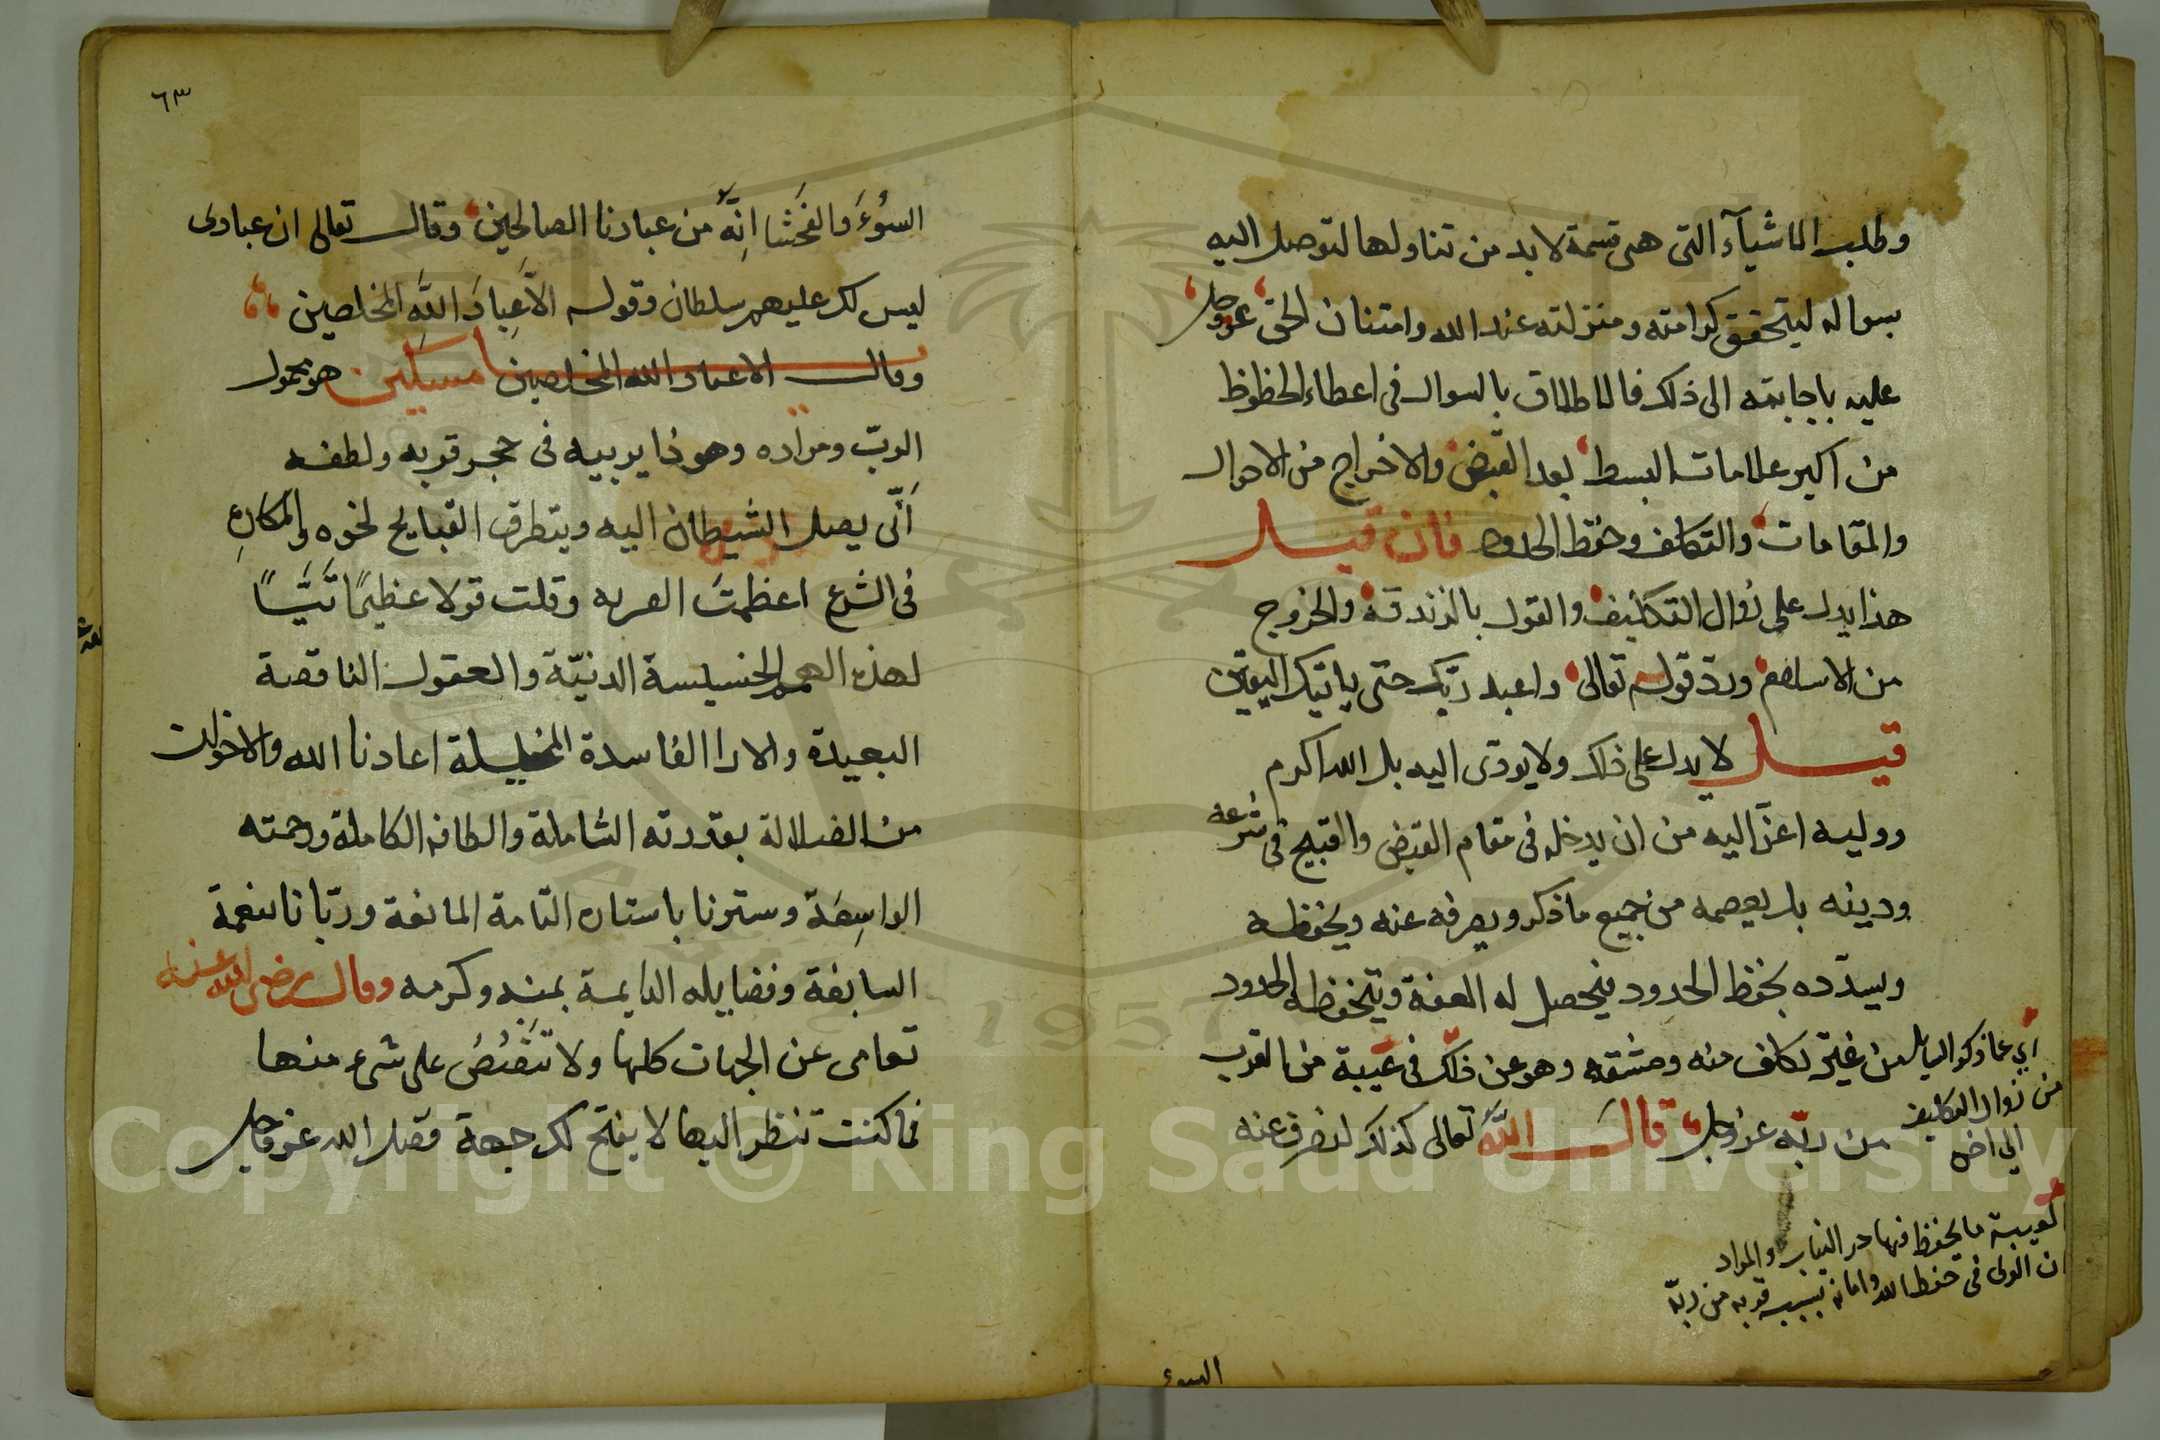 وطلب الاشيآء التى هى قسمة لا بد من تناولها لتوصل اليه
بسواله ليتحقق كرامته ومنزلته عند الله وامتنان الحق عز وجل
عليه باجابته الى ذلك فالاطلاق بالسوال فى اعطاء الحظوظ
من اكبر علامات البسط بعد القبض والاخراج من الاحوال
والمقامات والتكلف وحفظ الحدود فان قيل
هذا يدل على زوال التكليف والقول بالزندقة والخروج
من الاسلام ورد قوله تعالى واعبد ربك حتى ياتيك اليقين
قيل لا يدل على ذلك ولا يودى اليه بل الله اكرم
ووليه اعز اليه من ان يدخله فى مقام القبض والقبيح فى شرعه
ودينه بل يعصمه من جميع ما ذكر ويصرفه عنه ويحفظه
ويسدّده بحفظ الحدود فيحصل له العصمة ويتحفظ له الحدود
من غير تكلف منه ومشقه وهو عن ذلك فى غيبة من القرب
من ربّه عز وجل قال الله تعالى كذلك لنصرف عنه
اي عما ذكر السايل
من زوال التكليف
الى اخره
ما يحفظ فيها والمراد
ان الولى فى حفظ الله وامانه بسبب قربه من ربّه
السوء
٦٣
السُوُءَ والفحَشا انِهُّ من عبادنا الصالحين وقال تعالى ان عبادى
ليس لك عليهم سلطان وقوله الاّ عِبادَ اللهِ المخلصين
وقال الا عباد الله المخلصين يا مسكين هو محمول
الربّ ومراده وهو ذا يربيه فى حجر قربه ولطفه
اَنّى يصل الشيطان اليه ويتطرق القبايح نحوه والمكارهِ
فى الشرع اعظمتَ القربه وقلت قولا عظيمًا تَبًّا
لهذه الهمم الخسيسة الدنيّة والعقول الناقصة
البعيدة والارا الفاسدة المخيلة اعاذنا الله والاخوان
من الضلالة بقدرته الشاملة والطافه الكاملة ورحمته
الواسِعَة وسترنا باستاره التامة المانعة وربّانا بنعمة
السابغة وفضايله الدايمة بمنه وكرمه وقال رضى الله عنه
تعامى عن الجهات كلها ولا تَنْغُضُ على شىء منها
فما كنت تنظر اليها لا يفتح لك جهة فضل الله عز وجل